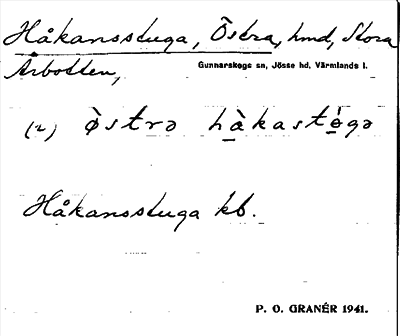 Håkansstuga, Östra, hmd, Stora
Årbotten,
Gunnarskogs sn, Jösse hd, Värmlands l.
(2) ö̀strə hà̱kasté̱gə
Håkansstuga kb.
P. O. GRANÉR 1941.